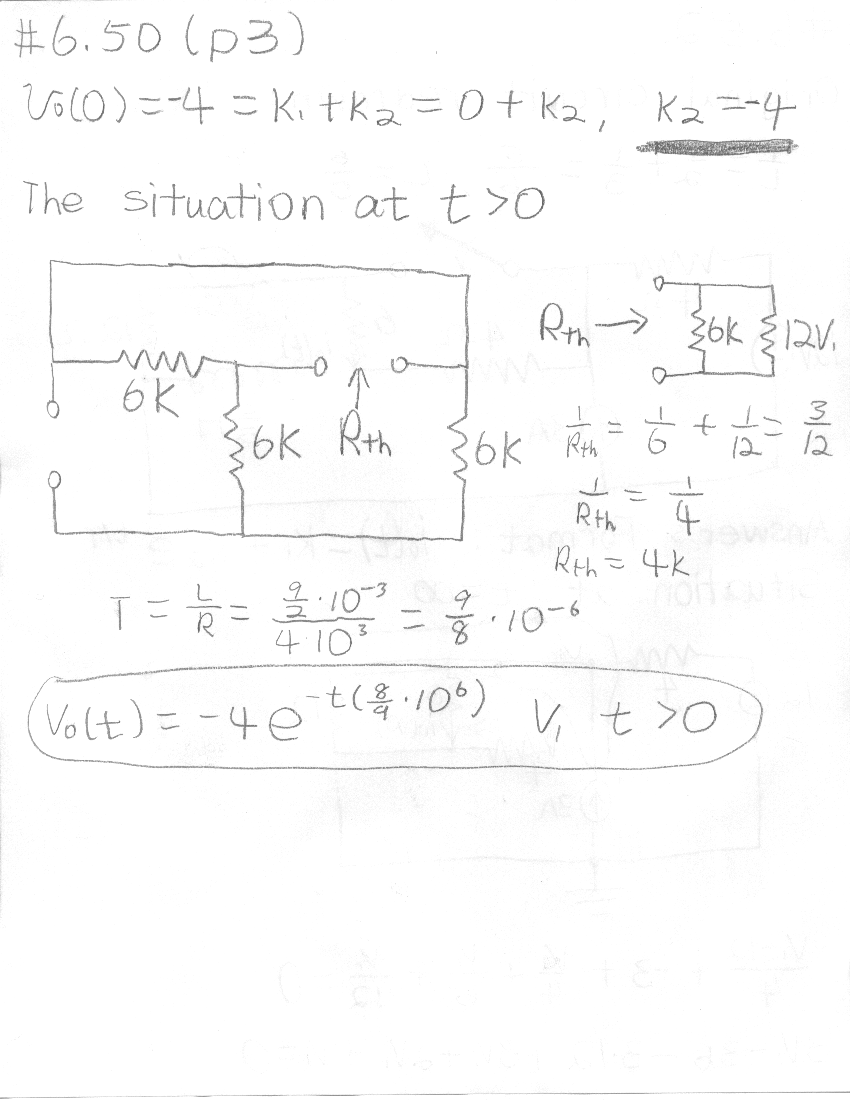 #6.50 (p3)
V₀(0) = -4 = K₁ + K₂ = 0 + K₂, K₂ = -4
The situation at t > 0
6K
6K
Rth
6K
Rth → 6K 12V,
1/Rth = 1/6 + 1/12 = 3/12
1/Rth = 1/4
Rth = 4K
T = L/R = (9/2 · 10⁻³)/(4·10³) = 9/8 · 10⁻⁶
V₀(t) = -4e^(-t(8/9 · 10⁶)) V, t > 0